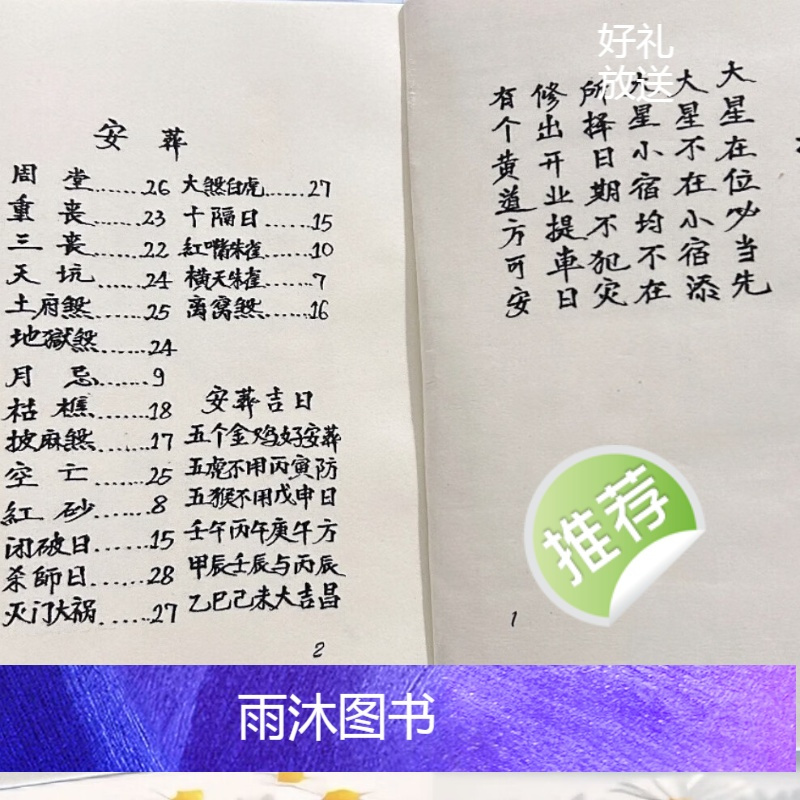 安 葬
周 堂......26
重 丧......23
三 丧......22
天 坑......24
土府煞......25
地獄煞......24
月 忌......9
枯 樵......18
披麻煞......17
空 亡......25
紅 砂......8
闭破日......15
杀師日......28
灭门大祸......27
大煞白虎......27
十隔日......15
紅嘴朱雀......10
横天朱雀......7
离窝煞......16
安葬吉日
五个金鸡好安葬
五虎不用丙寅防
五猴不用戊申日
壬午丙午庚午方
甲辰壬辰与丙辰
乙巳己未大吉昌
2
大星在位必当先
大星不在小宿添
大星小宿均不在
所择日期不犯灾
修出开业提車日
有个黄道方可安
1
好礼
放送
推荐
雨沐图书